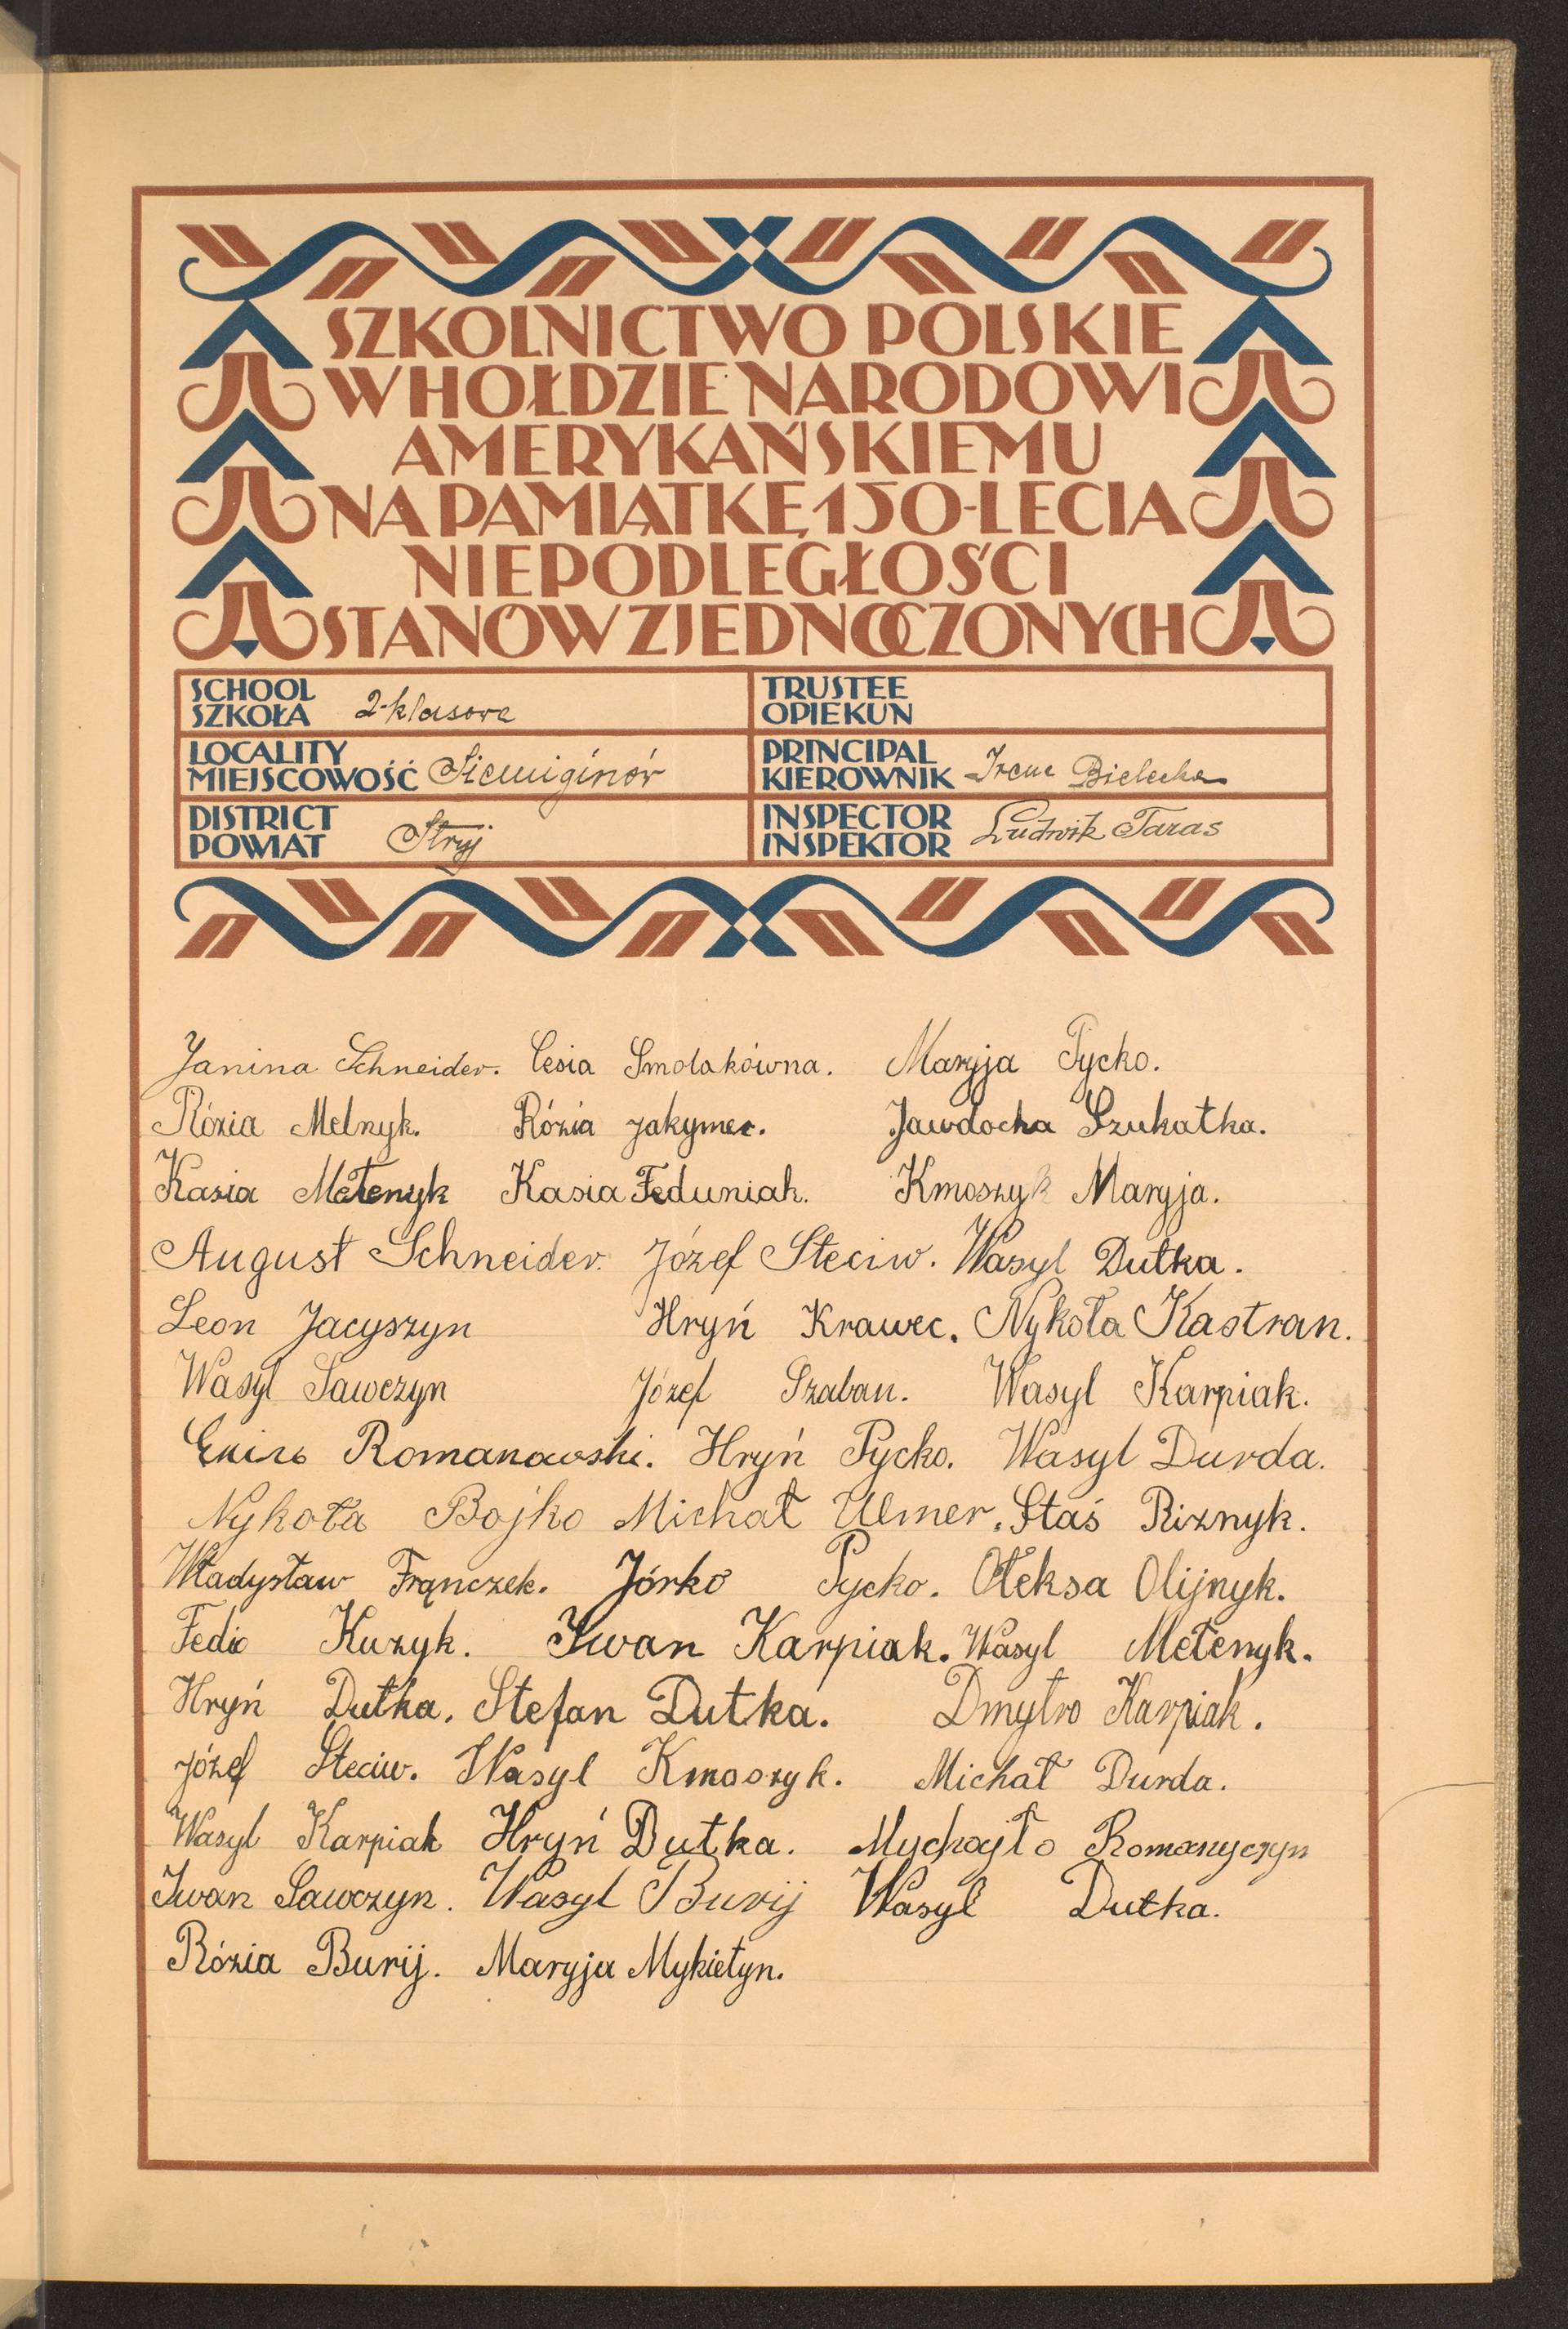 SZKOLNICTWO POLSKIE
W HOŁDZIE NARODOWI
AMERYKAŃSKIEMU
NA PAMIĄTKĘ 150-LECIA
NIEPODLEGŁOŚCI
STANÓW ZJEDNOCZONYCH
SCHOOL
SZKOŁA 2-klasowa
TRUSTEE
OPIEKUN
LOCALITY
MIEJSCOWOŚĆ Siemiginów
PRINCIPAL
KIEROWNIK Irena Bielecka
DISTRICT
POWIAT Stryj
INSPECTOR
INSPEKTOR Ludwik Taras
Janina Schneider. Cesia Smolakówna. Maryja Pycko.
Rózia Melnyk. Rózia Jakymec. Jawdocha Szukatka.
Kasia Metenyk Kasia Feduniak. Kmoszyk Maryja.
August Schneider. Józef Steciw. Wasyl Dutka.
Leon Jacyszyn Hryń Krawec. Nykoła Kastran.
Wasyl Sawczyn Józef Szaban. Wasyl Karpiak.
Romanowski. Hryń Pycko. Wasyl Durda.
Nykoła Bojko Michał Ulmer. Staś Riznyk.
Władysław Frączek. Jórko Pycko. Ołeksa Olijnyk.
Fedio Kuzyk. Iwan Karpiak. Wasyl Metenyk.
Hryń Dutka. Stefan Dutka. Dmytro Karpiak.
Józef Steciw. Wasyl Kmoszyk. Michał Durda.
Wasyl Karpiak Hryń Dutka. Mychajło Romanyczyn
Iwan Sawczyn. Wasyl Burij Wasyl Dutka.
Rózia Burij. Maryja Mykietyn.